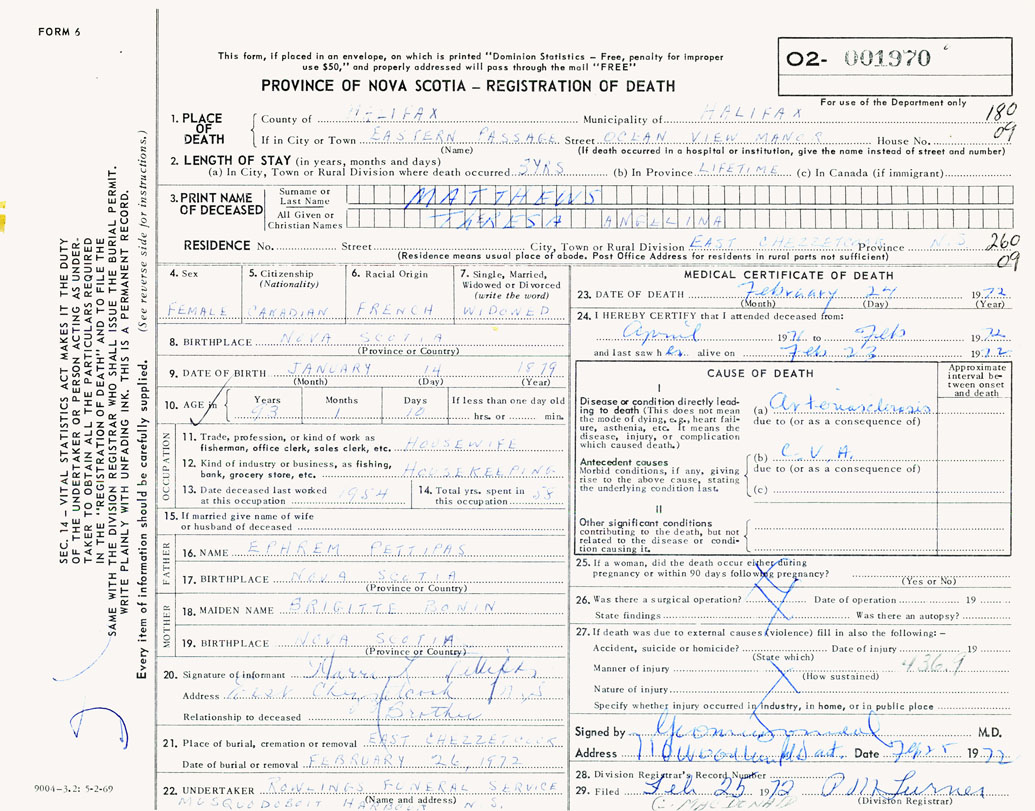 FORM 6
This form, if placed in an envelope, on which is printed "Dominion Statistics – Free, penalty for improper
use $50," and properly addressed will pass through the mail "FREE"
PROVINCE OF NOVA SCOTIA – REGISTRATION OF DEATH
O2- 001970
For use of the Department only
180
09
1. PLACE OF DEATH
County of HALIFAX Municipality of HALIFAX
If in City or Town EASTERN PASSAGE Street OCEAN VIEW MANOR House No.
(Name) (If death occurred in a hospital or institution, give the name instead of street and number)
2. LENGTH OF STAY (in years, months and days)
(a) In City, Town or Rural Division where death occurred 3YRS (b) In Province LIFETIME (c) In Canada (if immigrant)
3. PRINT NAME OF DECEASED
Surname or Last Name MATTHEWS
All Given or Christian Names THERESA ANGELINA
RESIDENCE No. Street City, Town or Rural Division EAST CHEZZETCOOK Province N.S.
(Residence means usual place of abode. Post Office Address for residents in rural parts not sufficient)
260
09
4. Sex FEMALE
5. Citizenship (Nationality) CANADIAN
6. Racial Origin FRENCH
7. Single, Married, Widowed or Divorced (write the word) WIDOWED
8. BIRTHPLACE NOVA SCOTIA
(Province or Country)
9. DATE OF BIRTH JANUARY 14 1879
(Month) (Day) (Year)
10. AGE in Years 93 Months 1 Days 10 If less than one day old hrs. or min.
OCCUPATION
11. Trade, profession, or kind of work as
fisherman, office clerk, sales clerk, etc. HOUSEWIFE
12. Kind of industry or business, as fishing,
bank, grocery store, etc. HOUSEKEEPING
13. Date deceased last worked
at this occupation 1954
14. Total yrs. spent in
this occupation 58
15. If married give name of wife
or husband of deceased
FATHER
16. NAME EPHREM PETTIPAS
17. BIRTHPLACE NOVA SCOTIA
(Province or Country)
MOTHER
18. MAIDEN NAME BRIGITTE BONIN
19. BIRTHPLACE NOVA SCOTIA
(Province or Country)
20. Signature of informant
Address Chezzetcook N.S.
Relationship to deceased Brother
21. Place of burial, cremation or removal EAST CHEZZETCOOK
Date of burial or removal FEBRUARY 26, 1972
22. UNDERTAKER ROWLINGS FUNERAL SERVICE
MUSQUODOBOIT HARBOUR N.S.
(Name and address)
MEDICAL CERTIFICATE OF DEATH
23. DATE OF DEATH February 24 1972
(Month) (Day) (Year)
24. I HEREBY CERTIFY that I attended deceased from:
April 1971 to Feb 1972
and last saw her alive on Feb 23 1972
CAUSE OF DEATH
Approximate interval between onset and death
I
Disease or condition directly leading to death (This does not mean the mode of dying, e.g., heart failure, asthenia, etc. It means the disease, injury, or complication which caused death.)
(a) Arteriosclerosis
due to (or as a consequence of)
Antecedent causes
Morbid conditions, if any, giving rise to the above cause, stating the underlying condition last.
(b) C.V.A.
due to (or as a consequence of)
(c)
II
Other significant conditions
contributing to the death, but not related to the disease or condition causing it.
25. If a woman, did the death occur either during
pregnancy or within 90 days following pregnancy?
(Yes or No)
26. Was there a surgical operation? Date of operation 19
State findings Was there an autopsy?
27. If death was due to external causes (violence) fill in also the following: –
Accident, suicide or homicide? Date of injury 19
(State which)
436.9
Manner of injury
(How sustained)
Nature of injury
Specify whether injury occurred in industry, in home, or in public place
Signed by M.D.
Address Date Feb 25 1972
28. Division Registrar's Record Number
29. Filed Feb 25 1972 P M Turner
(Division Registrar)
SEC. 14 – VITAL STATISTICS ACT MAKES IT THE DUTY
OF THE UNDERTAKER OR PERSON ACTING AS UNDERTAKER
TO OBTAIN ALL THE PARTICULARS REQUIRED
IN THE "REGISTRATION OF DEATH" AND TO FILE THE
SAME WITH THE DIVISION REGISTRAR WHO SHALL ISSUE THE BURIAL PERMIT.
WRITE PLAINLY WITH UNFADING INK. THIS IS A PERMANENT RECORD.
Every item of information should be carefully supplied. (See reverse side for instructions.)
9004-3.2: 5-2-69